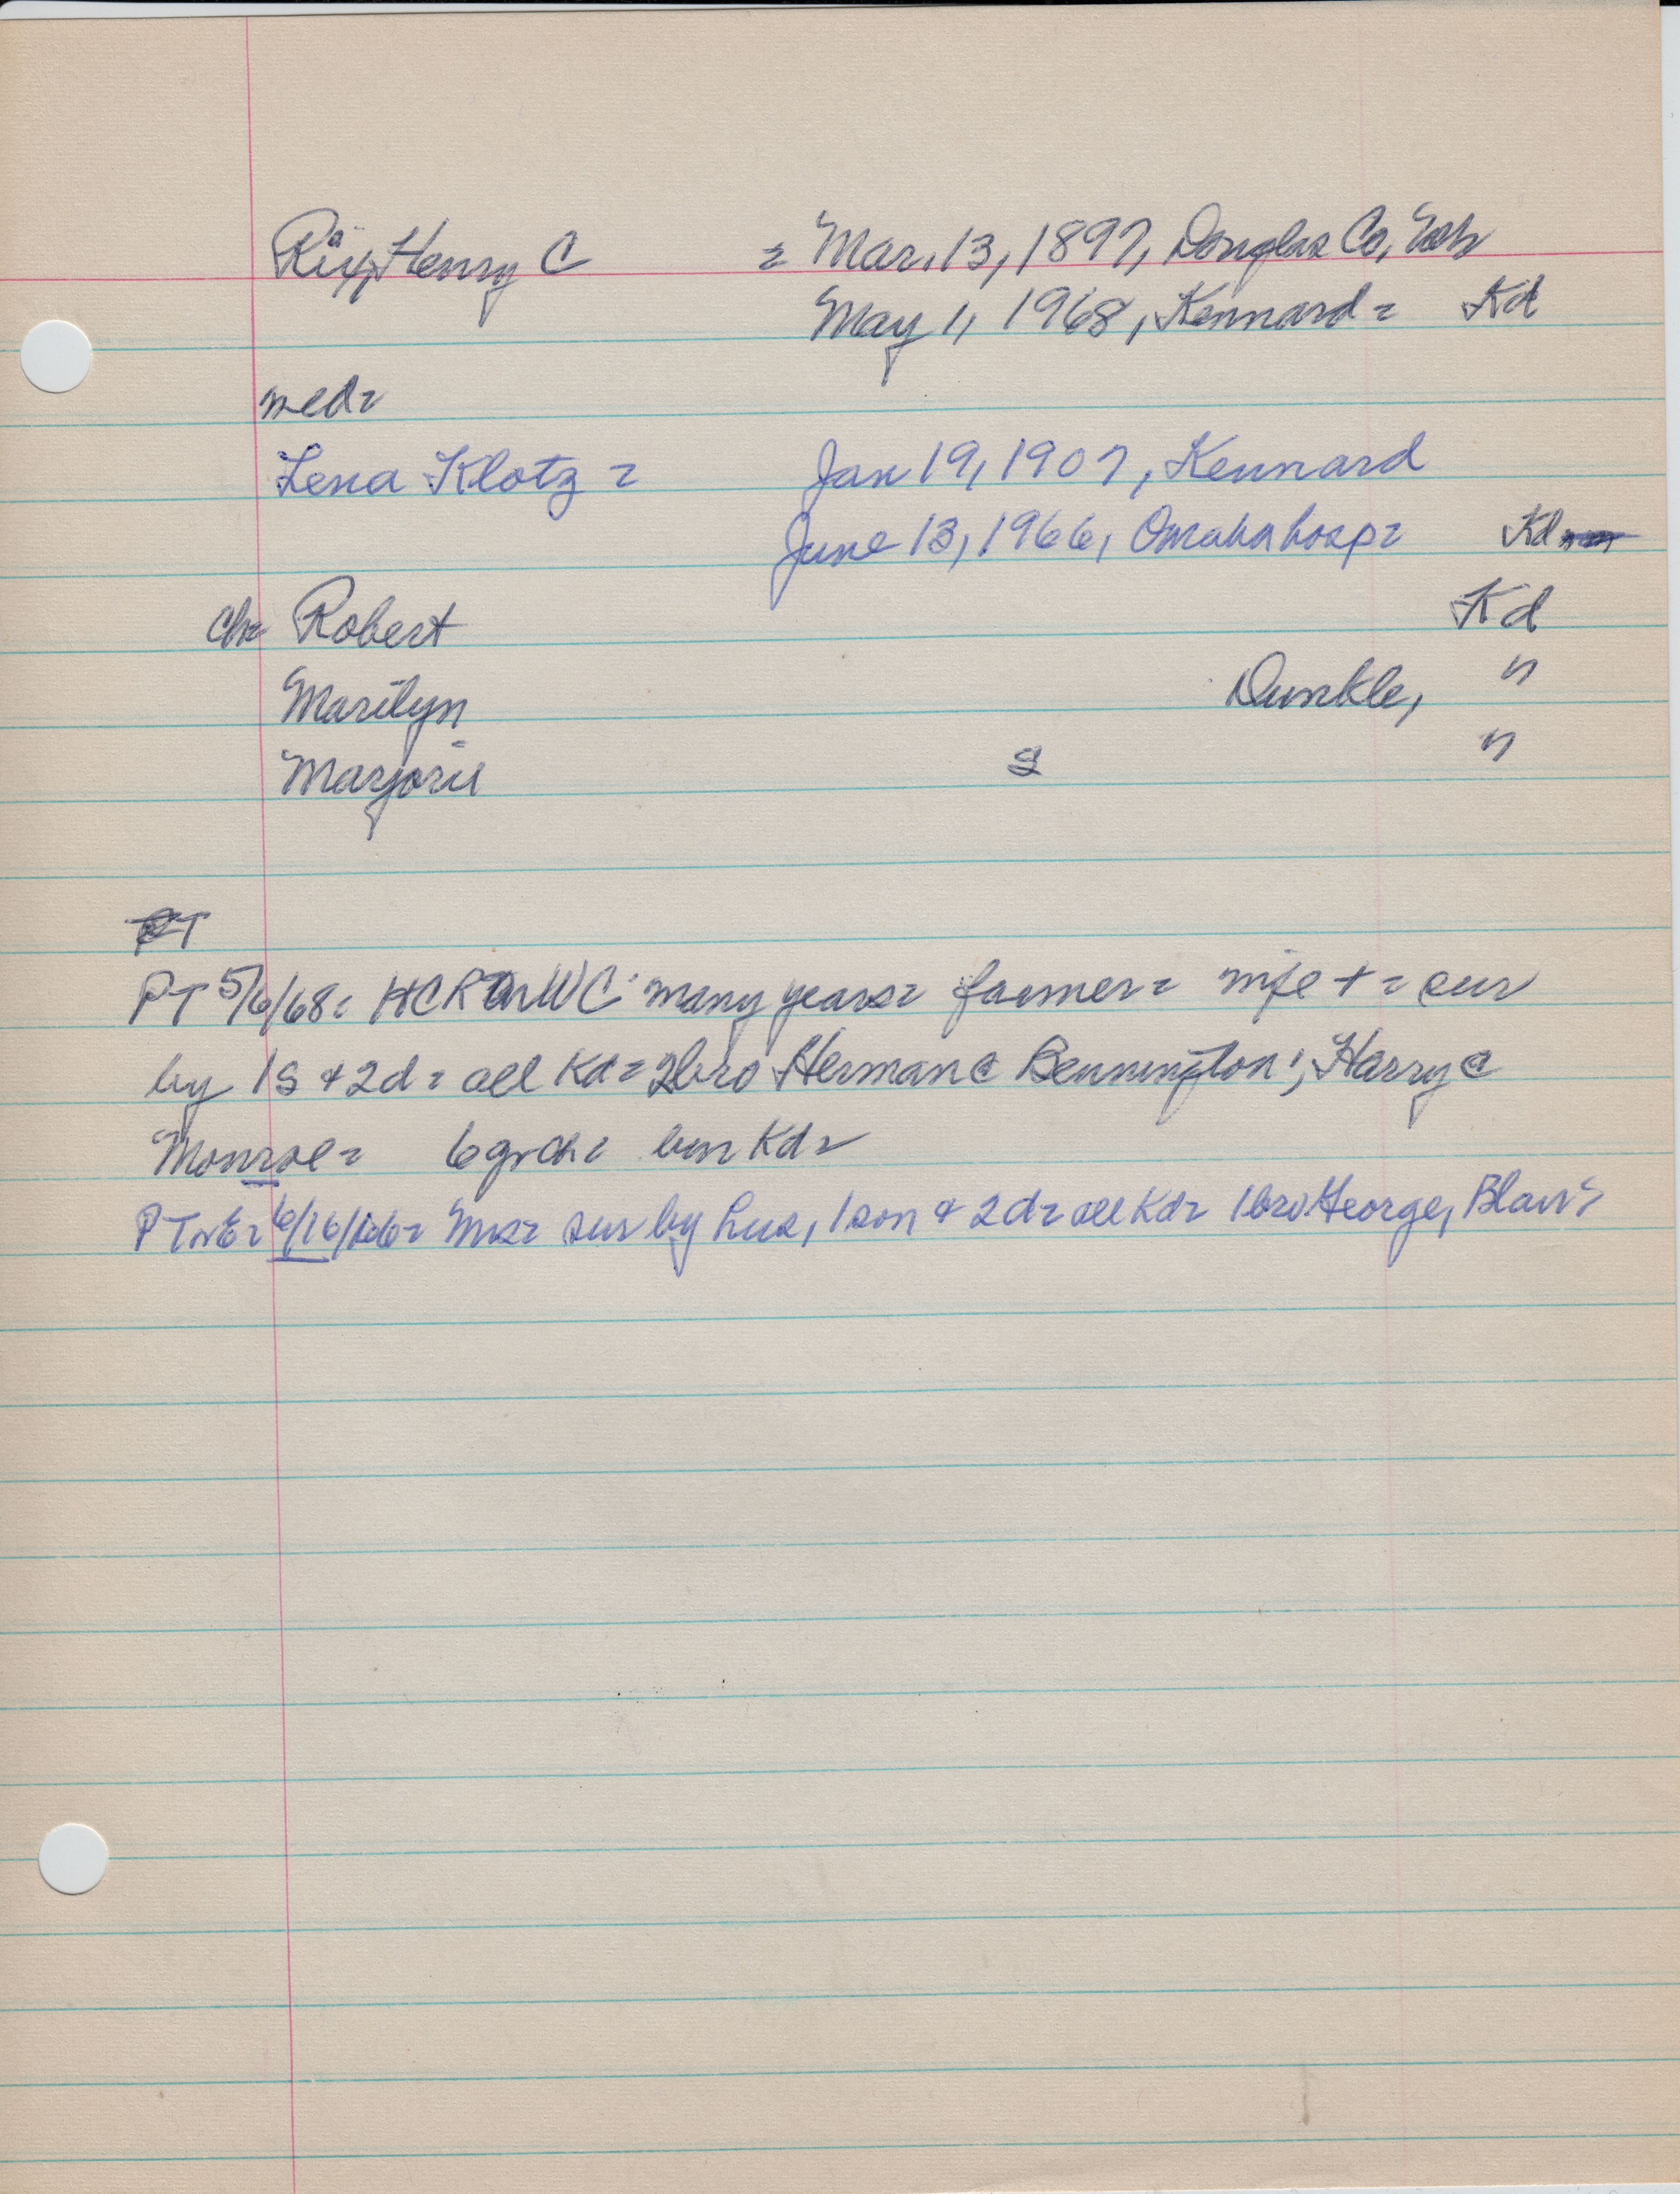 Rix, Henry C = Mar. 13, 1897, Douglas Co, Neb
May 1, 1968, Kennard = Kd
med=
Lena Klotz = Jan 19, 1907, Kennard
June 13, 1966, Omaha hosp= Kd
ch= Robert Kd
Marilyn Dunkle, "
Marjorie S "
PT
PT 5/6/68= HCR in WC many years= farmer= wife + = sur
by 1s + 2d= all Kd= 2bro Herman @ Bennington; Harry @
Monroe= 6 grch= bur Kd=
PTrE= 6/16/66= Mrs= sur by hus, 1 son + 2d= all Kd= 1bro George, Blair=